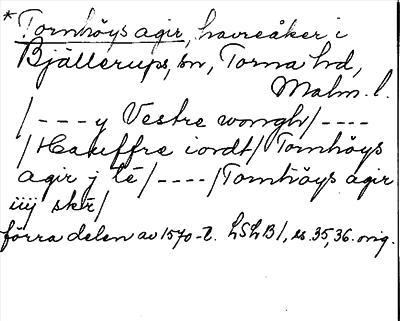 * Tornhöys agir, havreåker i
Bjällerups sn, Torna hd,
Malm. l.
/ - - - y Vestre wongh/ - - - -
/Hauffre iordt/ Tornhöys
agir j lé/ - - - - /Tornhöys agir
iiij skr/
förra delen av 1570-t. LSLB1, ss. 35, 36. orig.